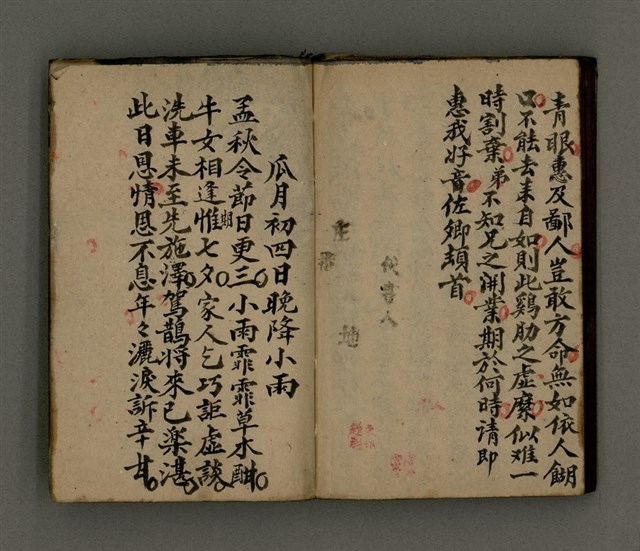 青眼惠及鄙人豈敢方命無如依人餬
口不能去來自如則此鷄肋之虛縻似难一
時割棄弟不知兄之開業期於何時请即
惠我好音佐卿頓首
代書人
地
瓜月初四日晚降小雨
孟秋令節日更三小雨霏霏草木酣
牛女相逢惟期七夕家人乞巧詎虛談
洗車未至先施澤駕鵲將來已樂湛
此日恩情恩不息年々灑淚訴辛甘